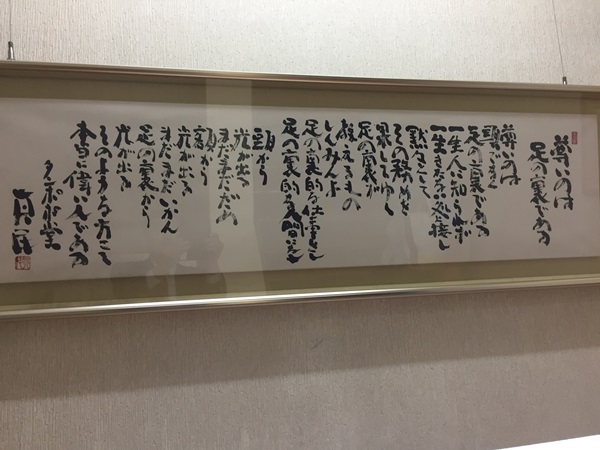 尊いのは
足の裏である
尊いのは
頭でなく
足の裏である
一生人に知られず
一生きたない処と接し
黙々として
その務めを
果してゆく
足の裏が
教えるもの
しんみんよ
足の裏的な仕事をし
足の裏的な人間になれ
頭から
光が出る
まだまだだめ
額から
光が出る
まだまだいかん
足の裏から
光が出る
そのような方こそ
本当に偉い人である
タンポポ堂
真民